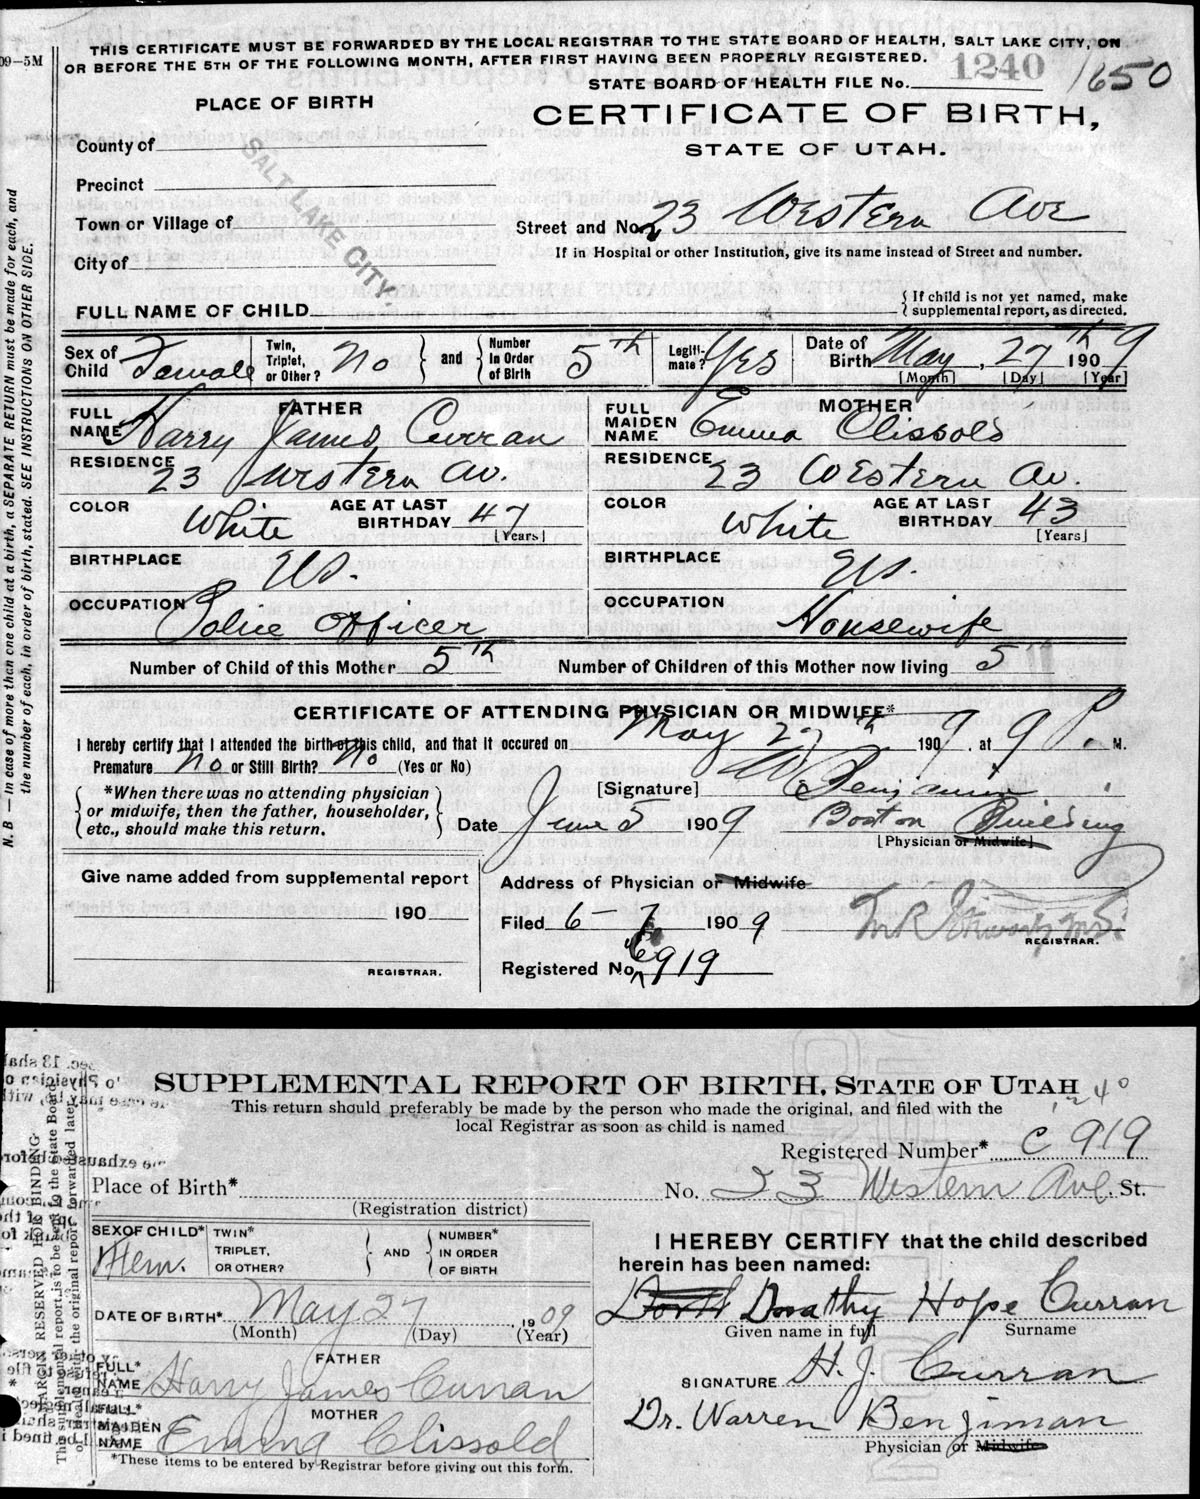 THIS CERTIFICATE MUST BE FORWARDED BY THE LOCAL REGISTRAR TO THE STATE BOARD OF HEALTH, SALT LAKE CITY, ON
OR BEFORE THE 5TH OF THE FOLLOWING MONTH, AFTER FIRST HAVING BEEN PROPERLY REGISTERED.
09—5M
STATE BOARD OF HEALTH FILE No. 1240 1650
PLACE OF BIRTH
CERTIFICATE OF BIRTH,
STATE OF UTAH.
County of
Precinct
Town or Village of
City of
SALT LAKE CITY.
Street and No. 23 Western Ave
If in Hospital or other Institution, give its name instead of Street and number.
FULL NAME OF CHILD
{ If child is not yet named, make
supplemental report, as directed.
Sex of Child Female Twin, Triplet, or Other? No } and { Number in Order of Birth 5th Legiti-mate? Yes Date of Birth May, 27th 1909
[Month] [Day] [Year]
FATHER
FULL NAME Harry James Curran
RESIDENCE 23 Western Av.
COLOR White AGE AT LAST BIRTHDAY 47 [Years]
BIRTHPLACE US.
OCCUPATION Police Officer
MOTHER
FULL MAIDEN NAME Emma Clissold
RESIDENCE 23 Western Av.
COLOR White AGE AT LAST BIRTHDAY 43 [Years]
BIRTHPLACE US.
OCCUPATION Housewife
Number of Child of this Mother 5th Number of Children of this Mother now living 5th
CERTIFICATE OF ATTENDING PHYSICIAN OR MIDWIFE*
I hereby certify that I attended the birth of this child, and that it occured on May 27th 1909, at 9 P. M.
Premature No or Still Birth? No (Yes or No)
{ *When there was no attending physician
or midwife, then the father, householder,
etc., should make this return. }
[Signature] W Benjamin
Date June 5 1909 Boston Building
[Physician or Midwife]
Give name added from supplemental report
190
REGISTRAR.
Address of Physician or Midwife
Filed 6-7 1909
REGISTRAR.
Registered No. C919
N. B — In case of more than one child at a birth, a SEPARATE RETURN must be made for each, and
the number of each, in order of birth, stated. SEE INSTRUCTIONS ON OTHER SIDE.
SUPPLEMENTAL REPORT OF BIRTH, STATE OF UTAH
1240
This return should preferably be made by the person who made the original, and filed with the
local Registrar as soon as child is named
Registered Number* C 919
Place of Birth* No. 23 Western Ave. St.
(Registration district)
SEX OF CHILD* Fem. TWIN* TRIPLET, OR OTHER? } AND { NUMBER* IN ORDER OF BIRTH
DATE OF BIRTH* May 27 1909
(Month) (Day) (Year)
FATHER
FULL* NAME Harry James Curran
MOTHER
FULL* MAIDEN NAME Emma Clissold
*These items to be entered by Registrar before giving out this form.
I HEREBY CERTIFY that the child described
herein has been named:
Dorathy Hope Curran
Given name in full Surname
SIGNATURE H. J. Curran
Dr. Warren Benjiman
Physician or Midwife
MARGIN RESERVED FOR BINDING